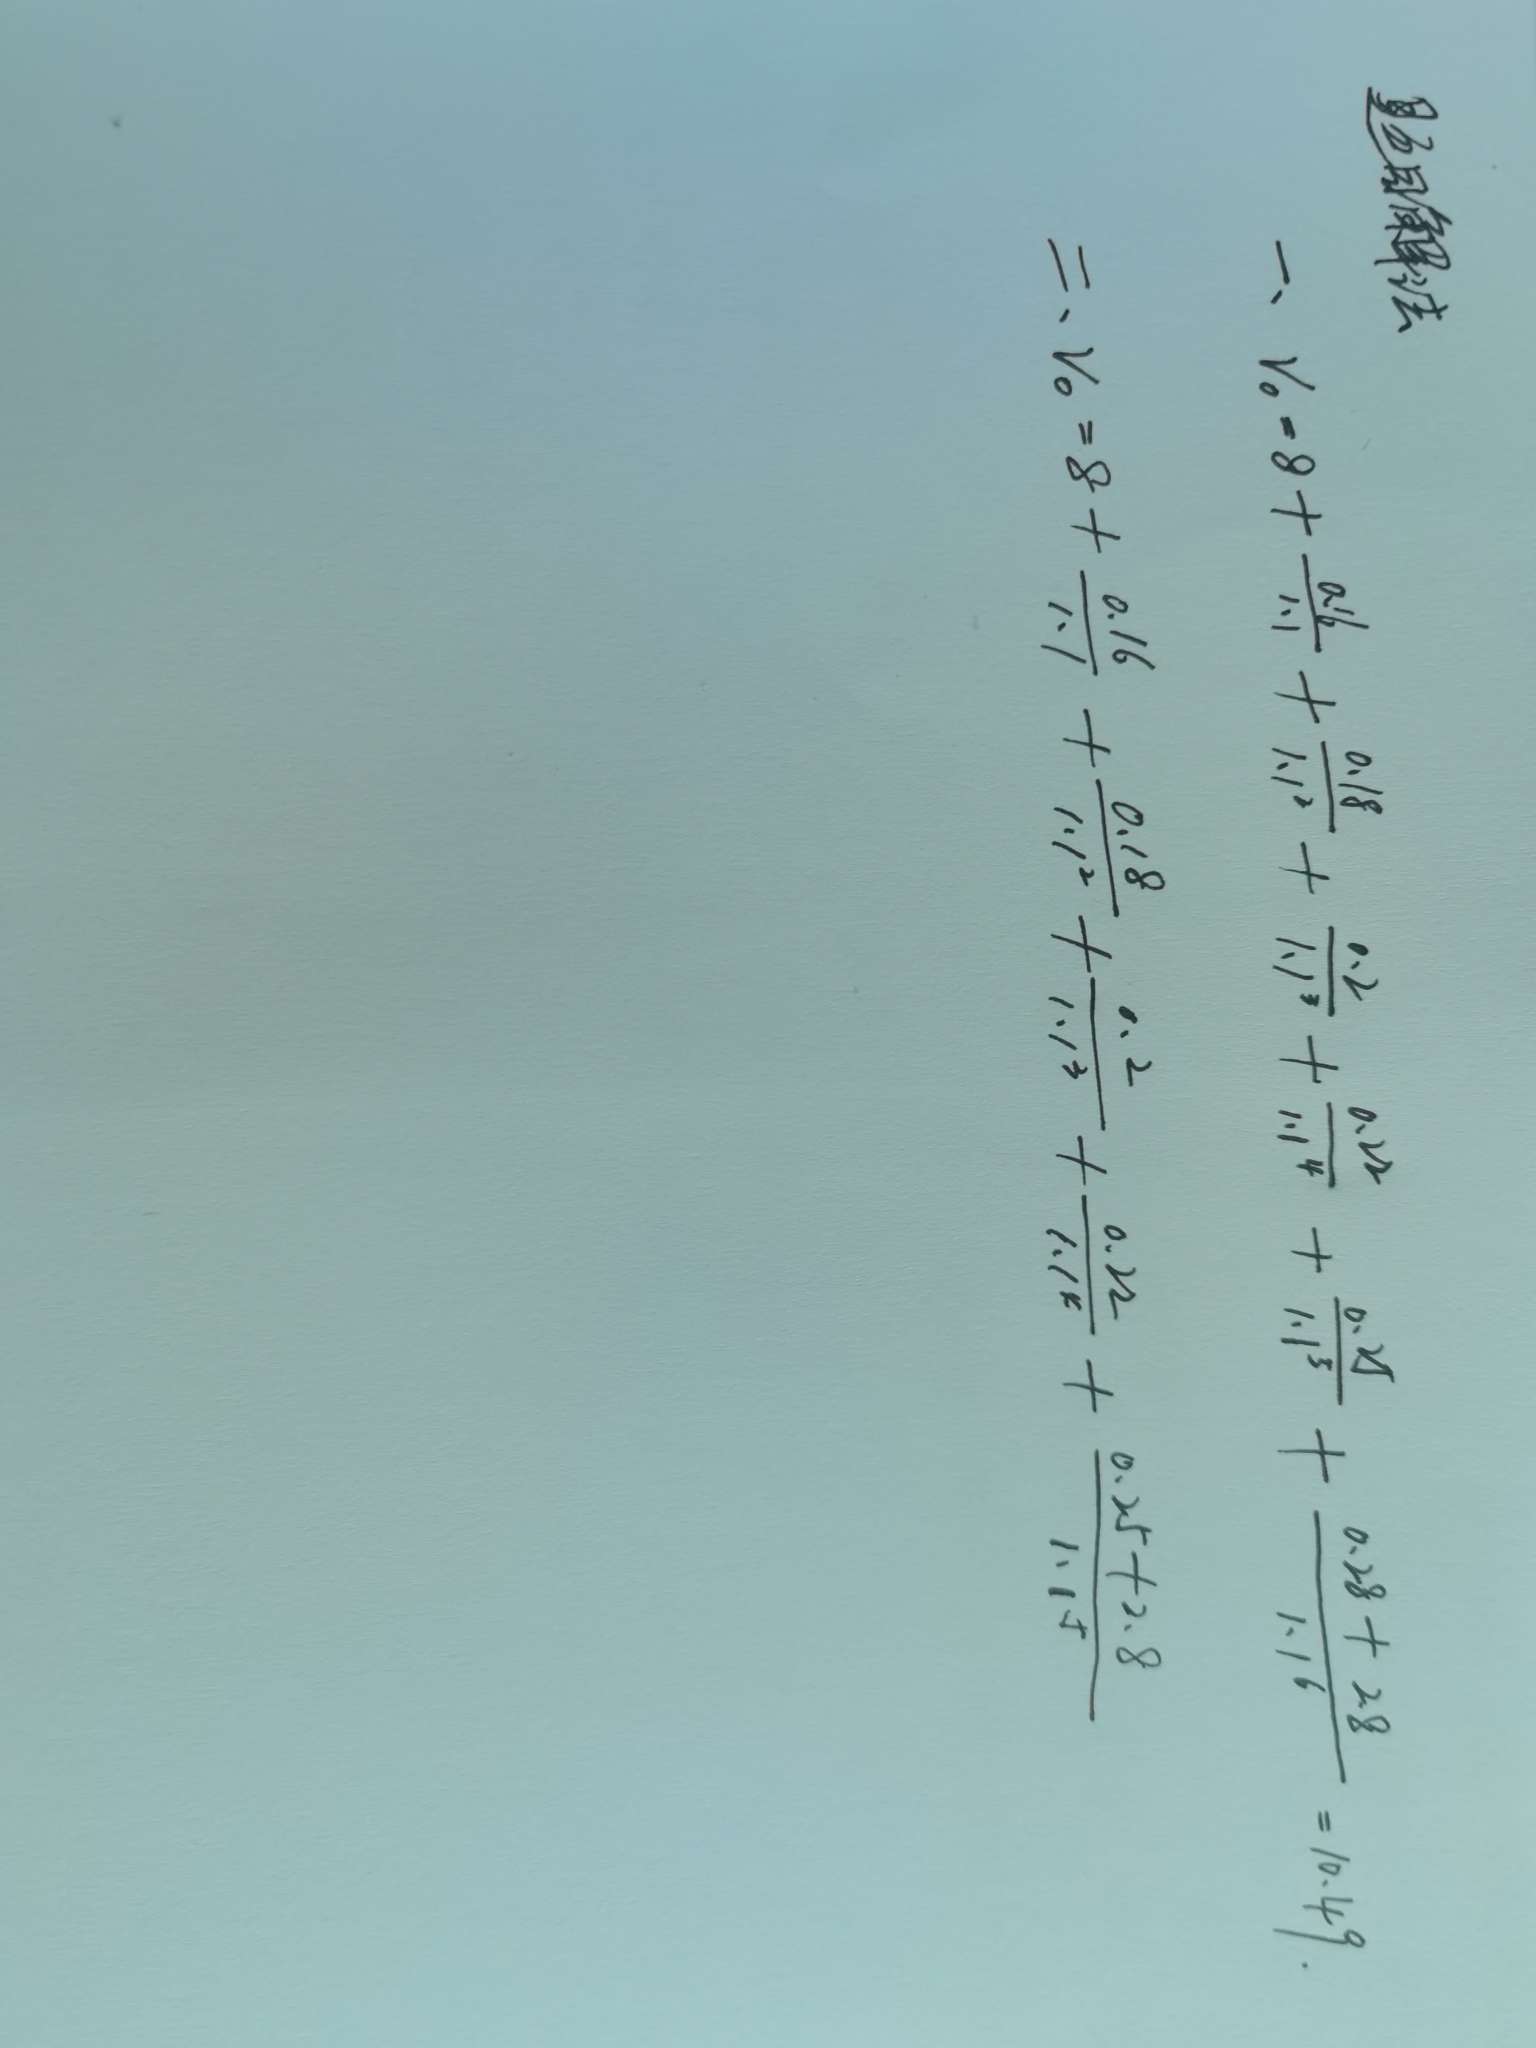 法
一、V₀=8+0.16/1.1+0.18/1.1²+0.2/1.1³+0.22/1.1⁴+0.25/1.1⁵+(0.28+2.8)/1.1⁶=10.49.
二、V₀=8+0.16/1.1+0.18/1.1²+0.2/1.1³+0.22/1.1⁴+(0.25+2.8)/1.1⁵